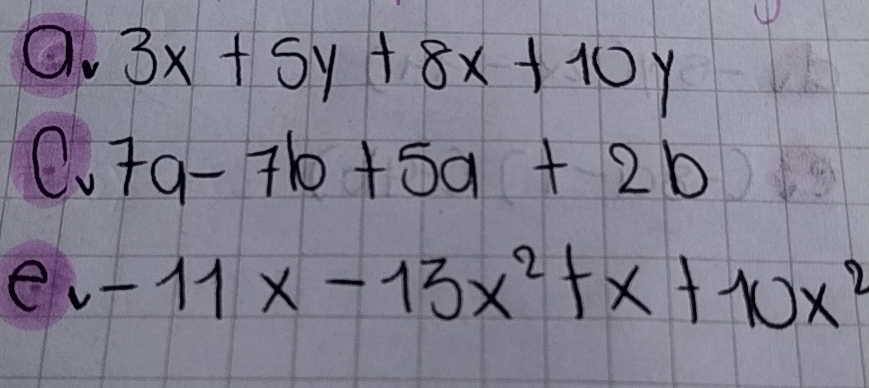 a. 3x + 5y + 8x + 10y
c. 7a - 7b + 5a + 2b
e. -11x - 13x² + x + 10x²